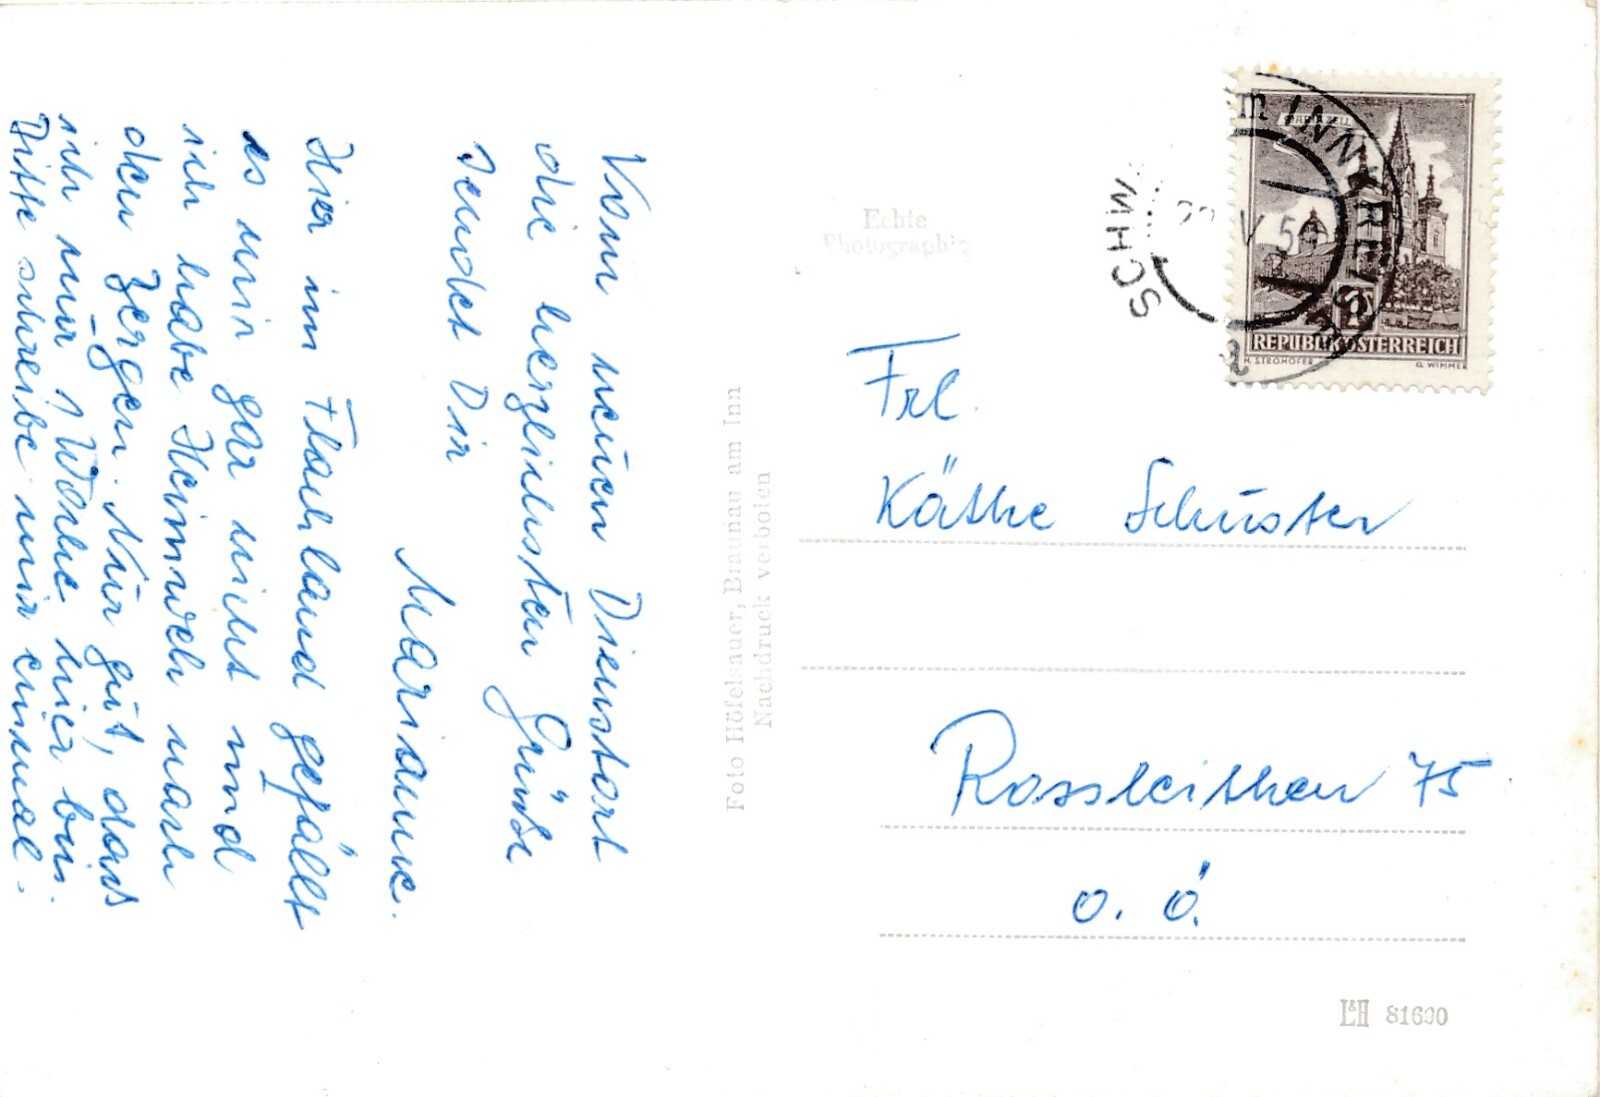 Vom neuen Dienstort
die herzlichsten Grüße
sendet Dir
Marianne.
Hier im Flachland gefällt
es mir gar nicht und
ich habe Heimweh nach
den Bergen. Nur gut, dass
ich nur 1 Woche hier bin.
Bitte schreibe mir einmal.
Foto Höfelsauer, Braunau am Inn
Nachdruck verboten
Echte
Photographie
MARIAZELL
REPUBLIK ÖSTERREICH
H. STROHOFER
G. WIMMER
am INNKREISE
V 5
Frl.
Käthe Schuster
Rossleithen 75
O. Ö.
L&H 81690